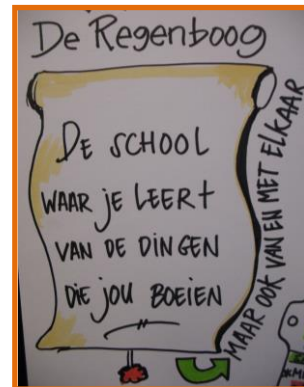 De Regenboog
DE SCHOOL
WAAR jE LEERT
VAN DE DINGEN
DIE jOU BOEIEN
MAAR OOK VAN EN MET ELKAAR